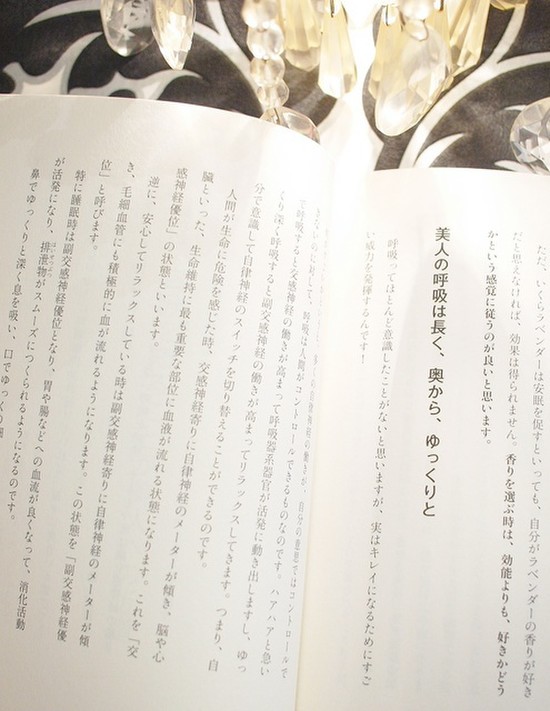 ただ、いくらラベンダーは安眠を促すといっても、自分がラベンダーの香りが好き
だと思えなければ、効果は得られません。香りを選ぶ時は、効能よりも、好きかどう
かという感覚に従うのが良いと思います。
美人の呼吸は長く、奥から、ゆっくりと
呼吸ってほとんど意識したことがないと思いますが、実はキレイになるためにすご
い威力を発揮するんです！
の自律神経の働きが、自分の意思ではコントロールで
きないのに対して、呼吸は人間がコントロールできるものなのです。ハアハアと急い
で呼吸すると交感神経の働きが高まって呼吸器系器官が活発に動き出しますし、ゆっ
くり深く呼吸すると副交感神経の働きが高まってリラックスしてきます。つまり、自
分で意識して自律神経のスイッチを切り替えることができるのです。
人間が生命に危険を感じた時、交感神経寄りに自律神経のメーターが傾き、脳や心
臓といった、生命維持に最も重要な部位に血液が流れる状態になります。これを「交
感神経優位」の状態といいます。
逆に、安心してリラックスしている時は副交感神経寄りに自律神経のメーターが傾
き、毛細血管にも積極的に血が流れるようになります。この状態を「副交感神経優
位」と呼びます。
特に睡眠時は副交感神経優位となり、胃や腸などへの血流が良くなって、消化活動
が活発になり、排泄物がスムーズにつくられるようになるのです。
鼻でゆっくりと深く息を吸い、口でゆっくり